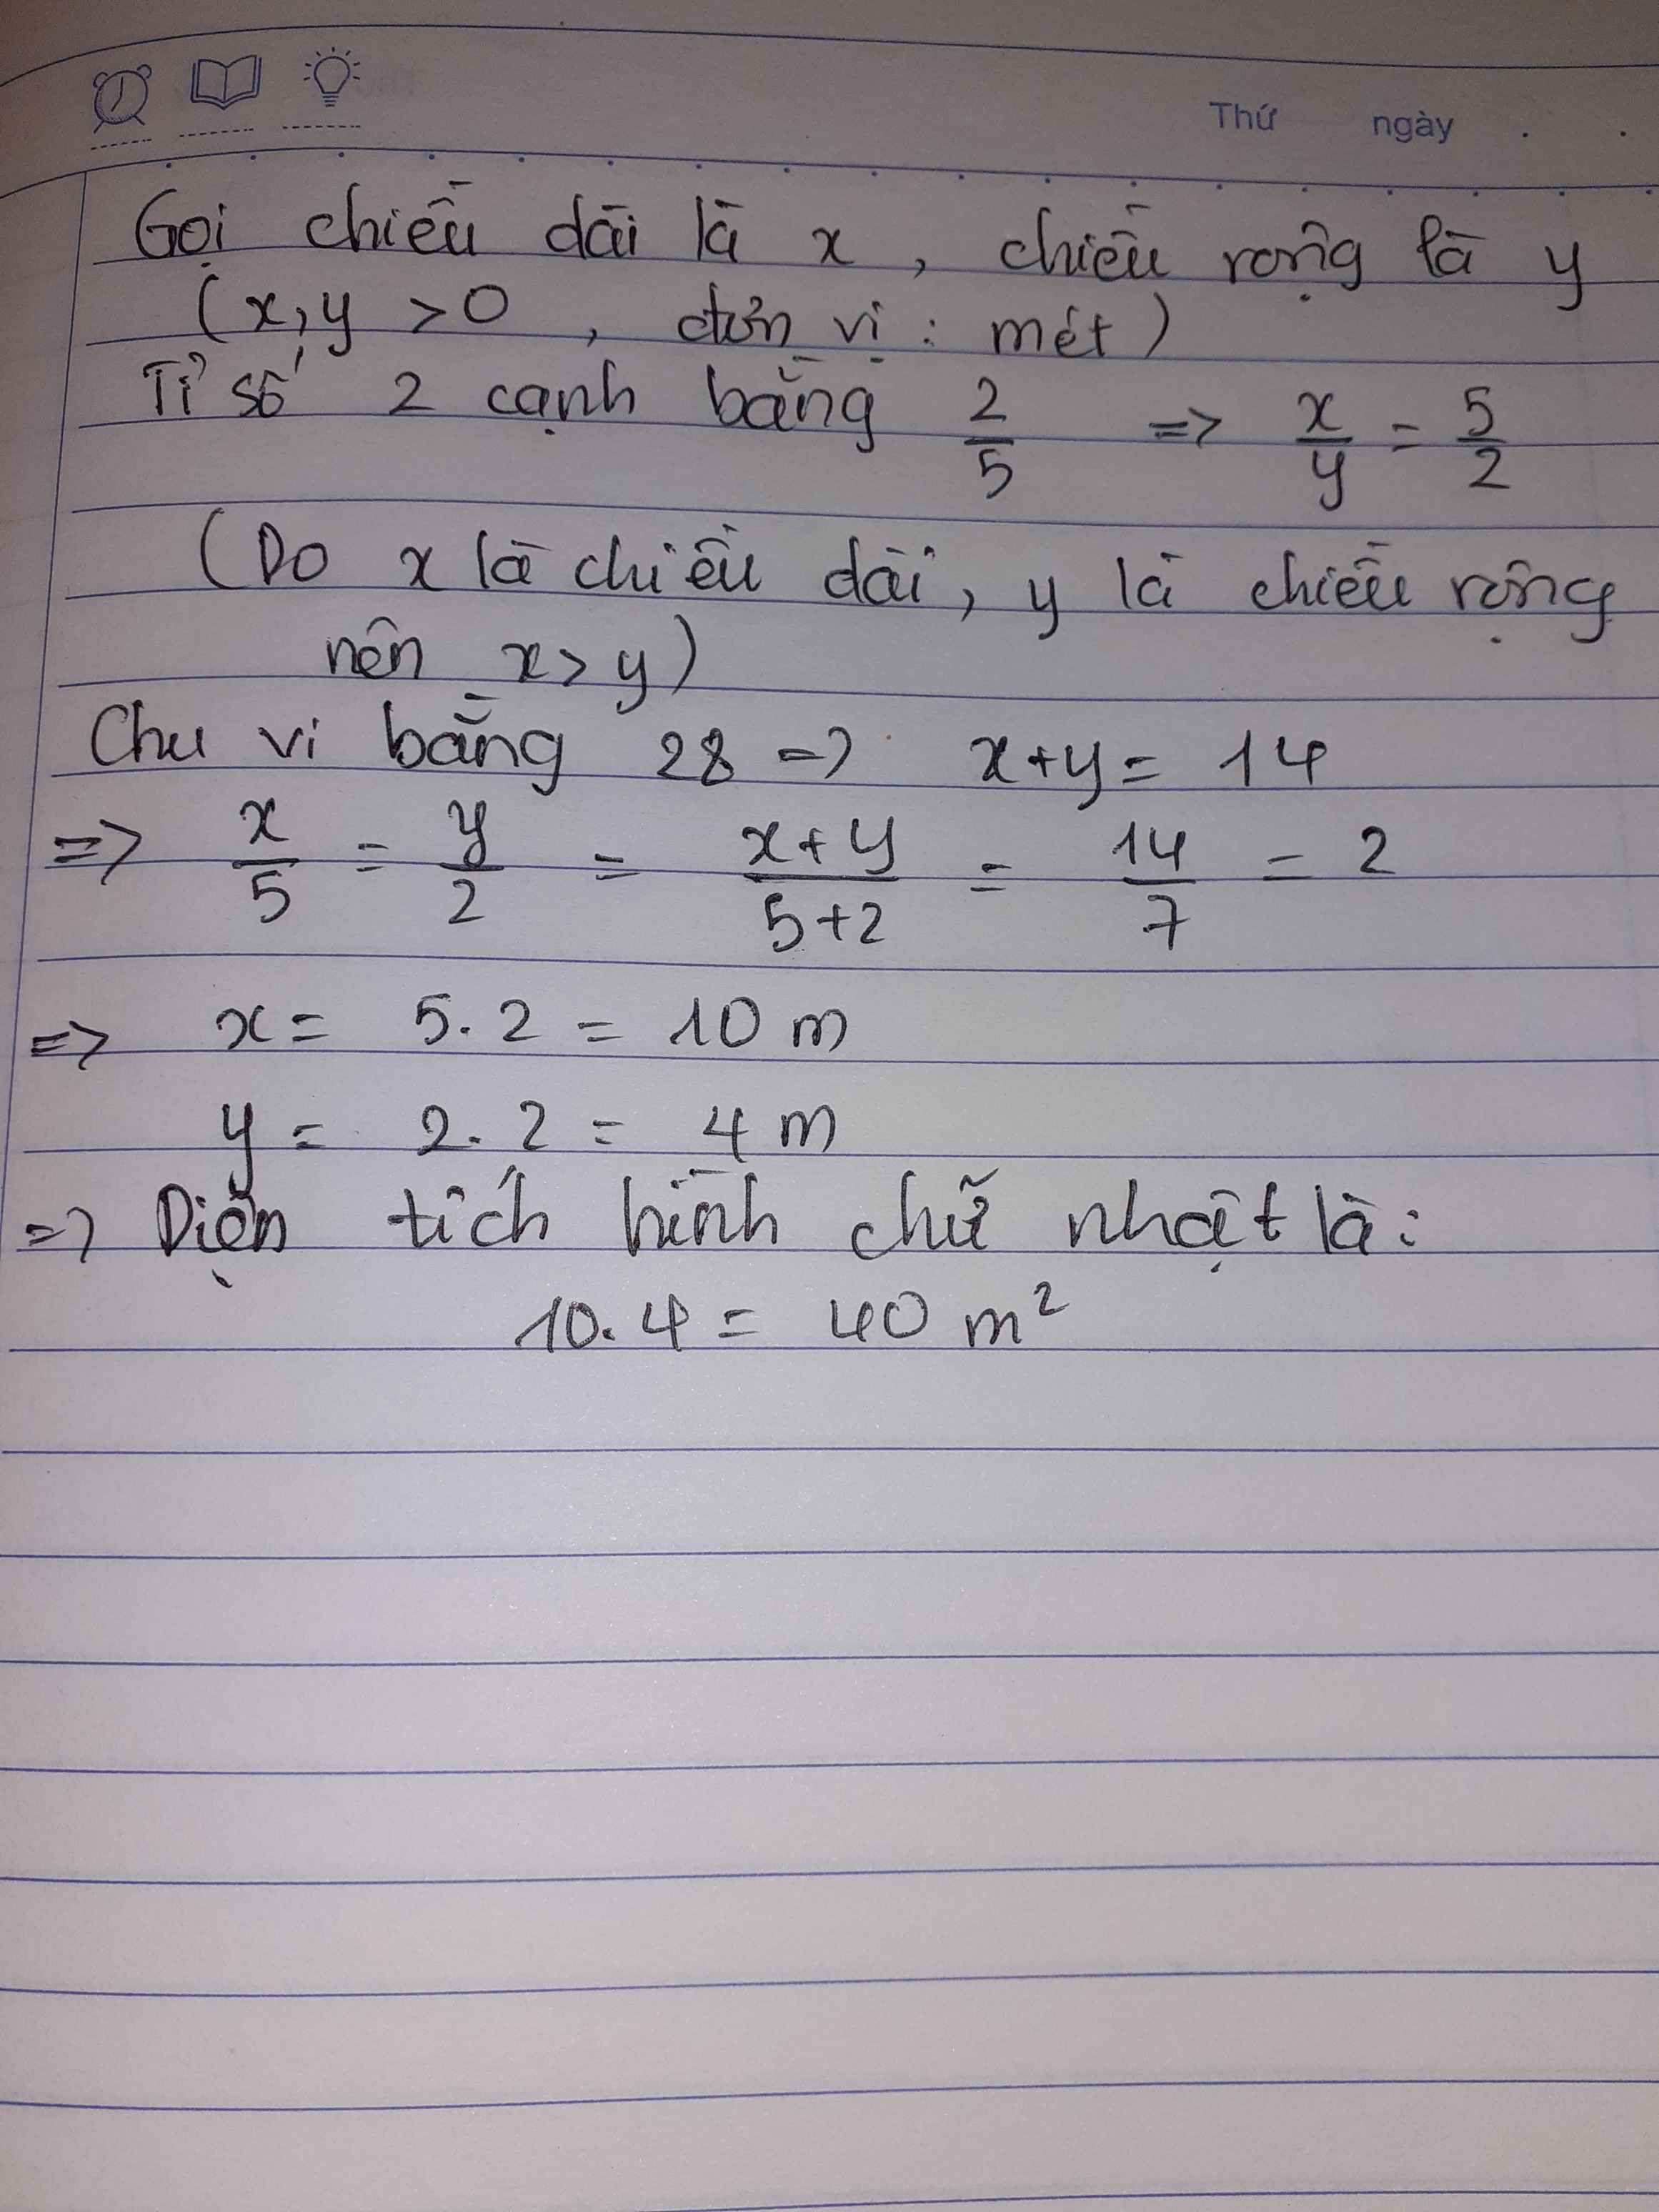 Thứ ngày . .
Gọi chiều dài là x, chiều rộng là y
(x, y > 0, đơn vị: mét)
Tỉ số 2 cạnh bằng 2/5 => x/y = 5/2
(Do x là chiều dài, y là chiều rộng
nên x > y)
Chu vi bằng 28 => x+y = 14
=> x/5 = y/2 = (x+y)/(5+2) = 14/7 = 2
=> x = 5.2 = 10 m
y = 2.2 = 4 m
=> Diện tích hình chữ nhật là:
10.4 = 40 m²